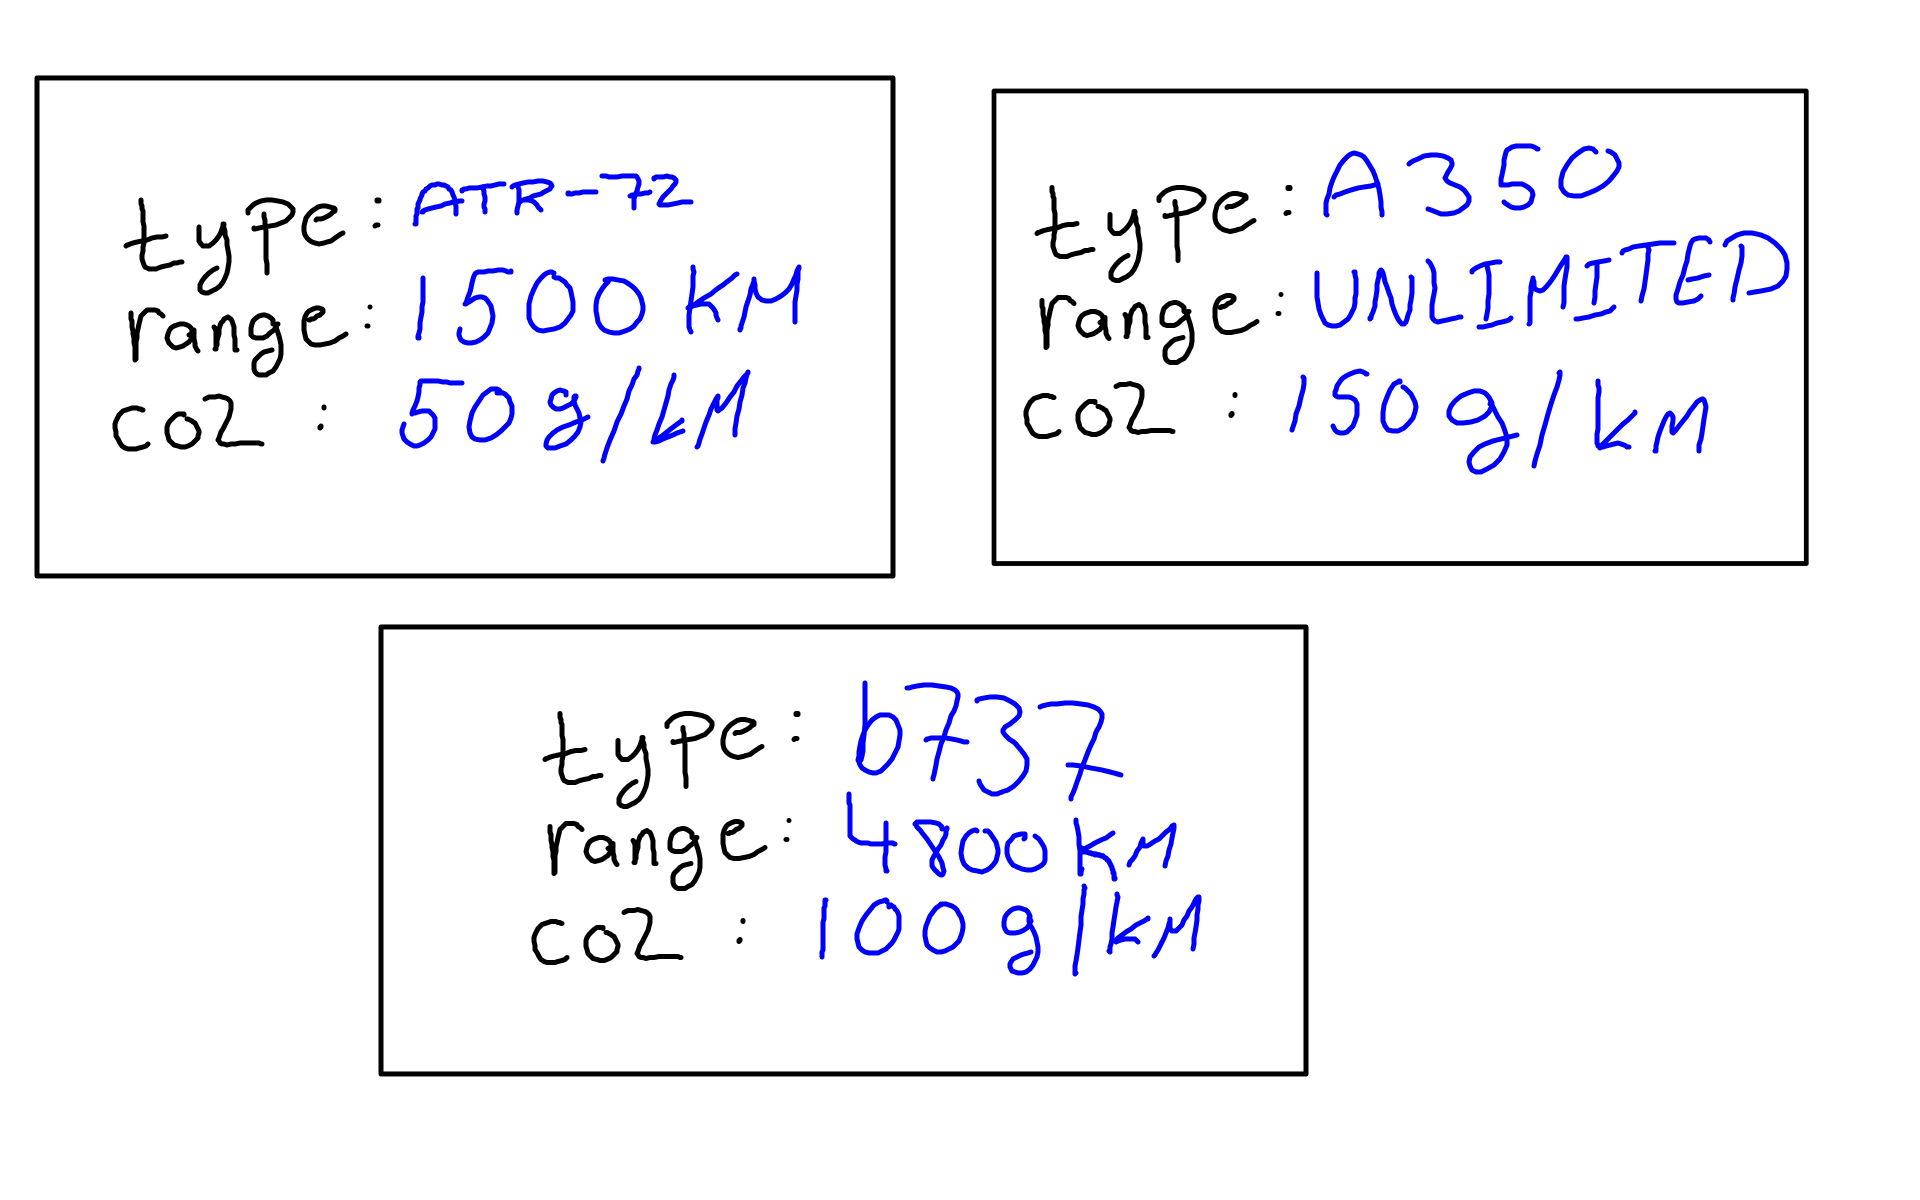 type: ATR-72
range: 1500 KM
co2 : 50 g/kM
type: A350
range: UNLIMITED
co2 : 150 g/kM
type: b737
range: 4800 kM
co2 : 100 g/kM